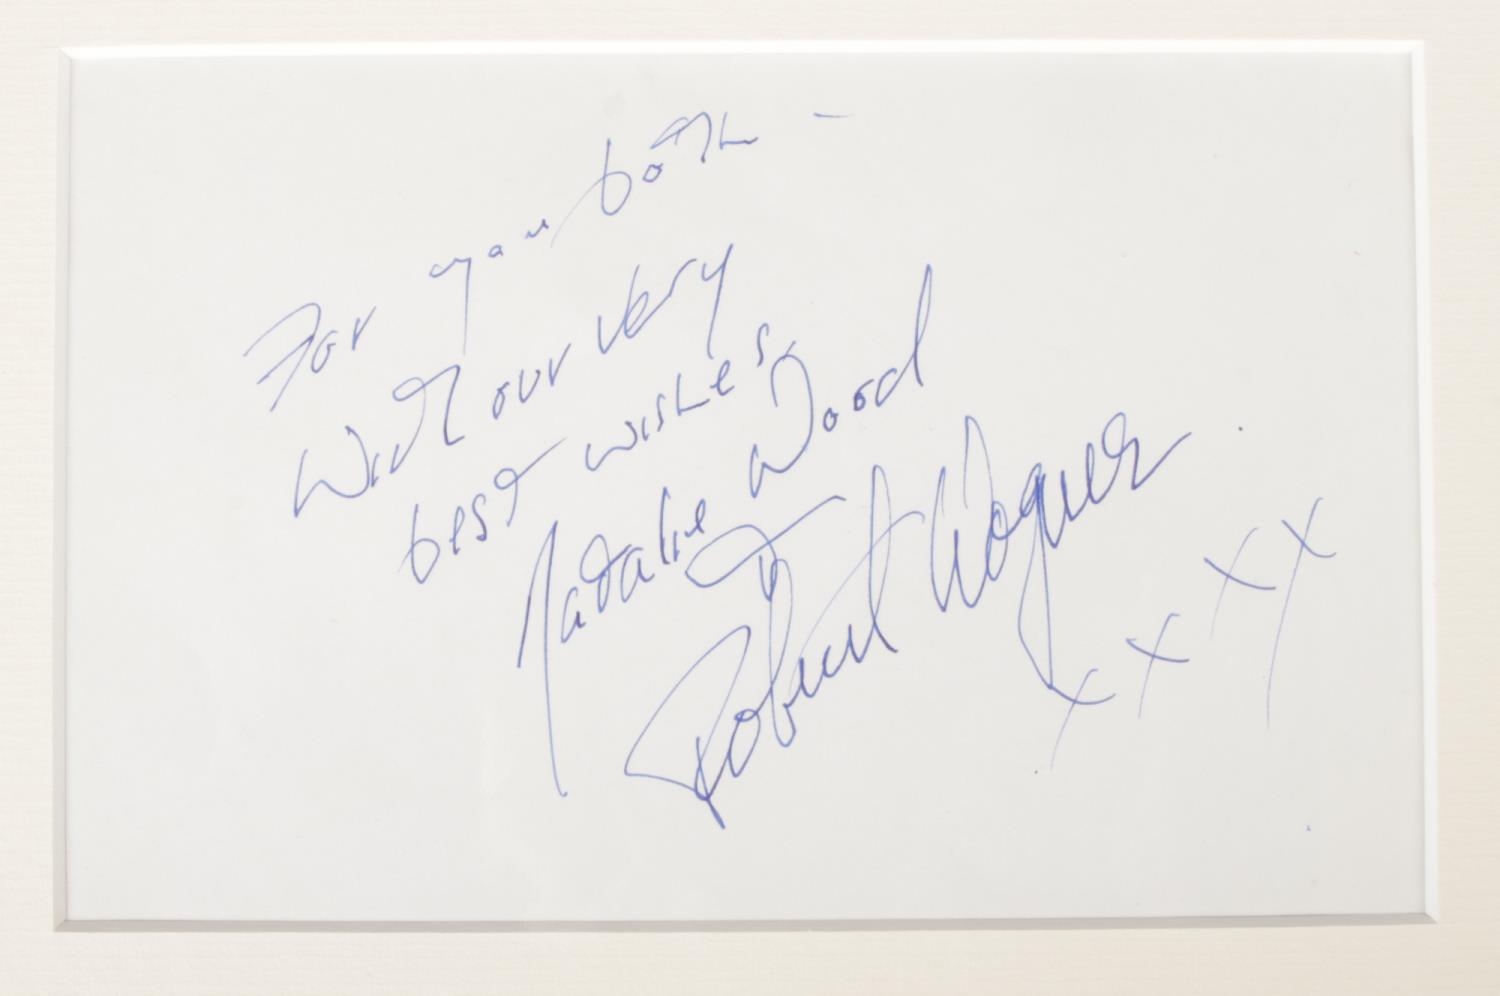 For you both -
With our very
best wishes,
Natalie Wood
Robert Wagner
xxxx